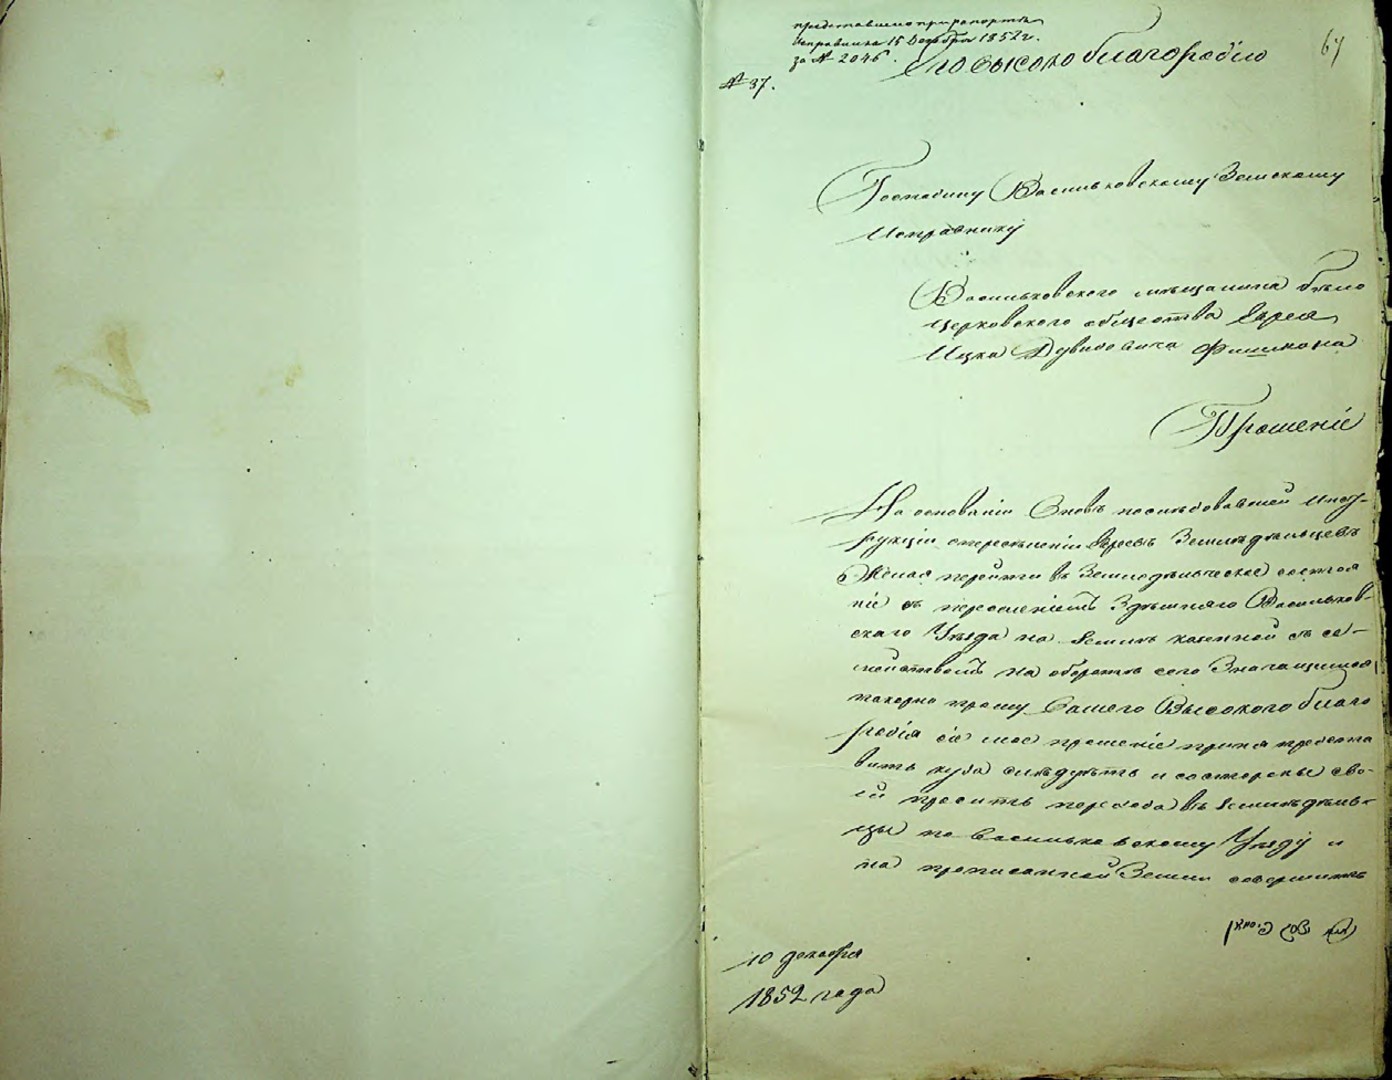 представлено при рапорте
Исправника 15 Декабря 1852 г.
за № 2046.
67
Его высокоблагородію
№ 37.
Господину Васильковскому Земскому
Исправнику
Васильковского мещанина бѣло
церковского общества Еврея
Ицка Дувидовича Фишмана
Прошеніе
На основаніи вновь последовавшей Инст-
рукціи о переселеніи Евреевъ Земледѣльцевъ
Желая перейти въ Земледѣльческое состоя
ніе съ переселеніемъ Здѣшняго Васильков-
скаго Уѣзда на Земли казенной съ се-
мействомъ на оборотѣ сего Значащимся
покорно прошу Вашего Высокоблаго
родія сіе мое прошеніе приня представ
вить куда слѣдуетъ и со стороны сво-
ей просить перехода въ Земледѣль-
цы по Васильковскому Уѣзду и
на прописанной Земли совершить
10 декабря
1852 года